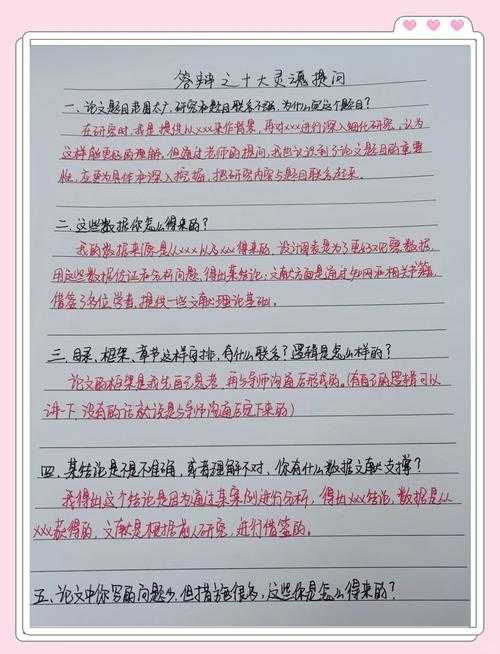 答辩之十大灵魂提问
一、论文题目范围太广,研究和题目联系不强,为什么定这个题目?
在研究时,我是提供以xxx来作背景,再对xxx进行深入细化研究,认为
这样能更好的理解,但通过老师的提问,我也认识到了论文题目的重要
性,应更为具体和深入挖掘,把研究内容与题目联系起来。
二、这些数据你怎么得来的?
我的数据来源是从xxx以及xxx得来的,设计图表是为了更好观察数据,
用这些数据佐证和分析问题,得出某结论,文献方面是通过知网和相关书籍,
借鉴了各位学者,提供一些文献理论基础。
三、目录、框架、章节这样安排,有什么联系?逻辑是怎么样的?
论文的框架是我先自己思考,再与导师沟通后形成的。(有自己的逻辑可以
讲一下,没有的话就说是与导师沟通后定下来的)
四、某结论是不是不准确,或者理解不对,你有什么数据文献支撑?
我得出这个结论是因为通过某案例进行分析,得出xxx结论,数据是从
xxx获得的,文献是根据前人研究,进行借鉴的。
五、论文中你写的问题少,但措施很多,这些你是怎么得来的?